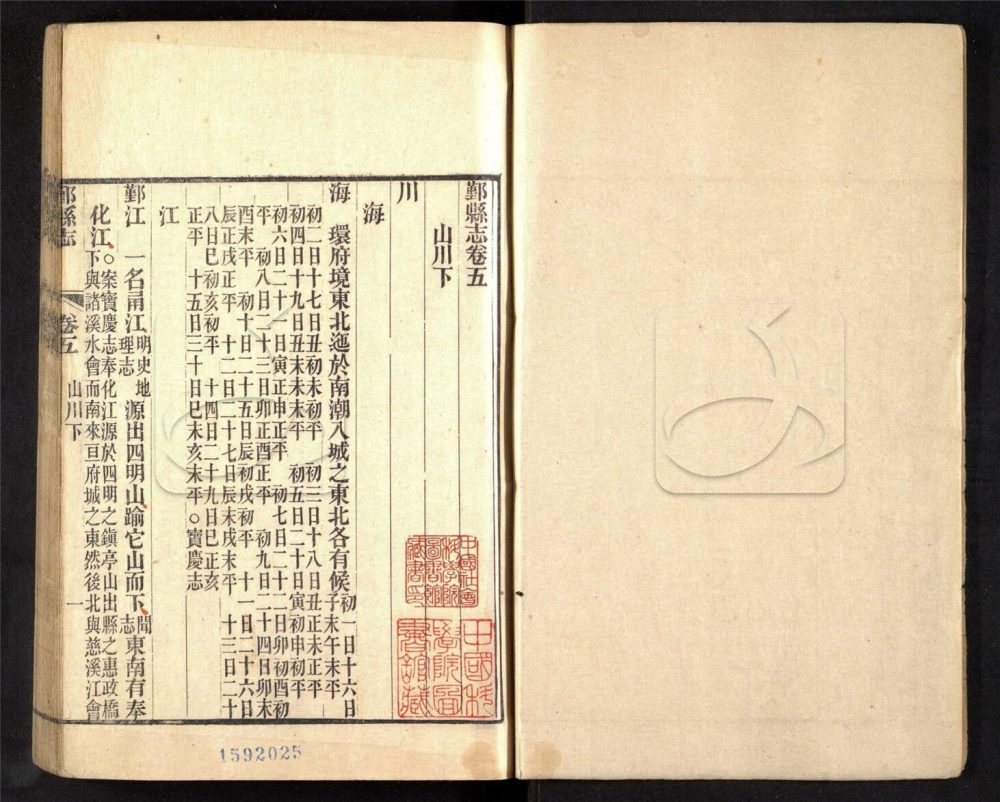 鄞縣志卷五
山川下
川
海
海　環府境東北迤於南潮入城之東北各有候初一日十六日子末午末平
初二日十七日丑初未初平　初三日十八日丑正未正平
初四日十九日丑末未末平　初五日二十日寅初申初平
初六日二十一日寅正申正平　初七日二十二日卯初酉初
平　初八日二十三日卯正酉正平　初九日二十四日卯末
酉末平　初十日二十五日辰初戌初平　十一日二十六日
辰正戌正平　十二日二十七日辰末戌末平　十三日二十
八日巳初亥初平　十四日二十九日巳正亥
正平　十五日三十日巳末亥末平○寶慶志
江
鄞江　一名甬江明史地理志源出四明山踰它山而下聞志東南有奉
化江○案寶慶志奉化江源於四明之鎮亭山出縣之惠政橋
下與諸溪水會而南來亘府城之東然後北與慈溪江會
鄞縣志　卷五　山川下　一
中國社會科學院圖書館藏書印
中國科學院圖書館藏
1592025